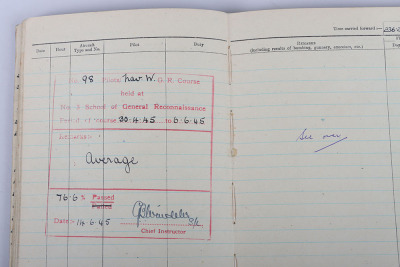 Time carried forward:— 
Date Hour Aircraft Type and No. Pilot Duty REMARKS
(including results of bombing, gunnery, exercises, etc.)
98 Nav W. G. R. Course
held at
School of General Reconnaissance
Period of course 30.4.45 to 6.6.45
Remarks:-
Average
See over
76.6 % Passed
Failed
Date:- 14.6.45
Chief Instructor